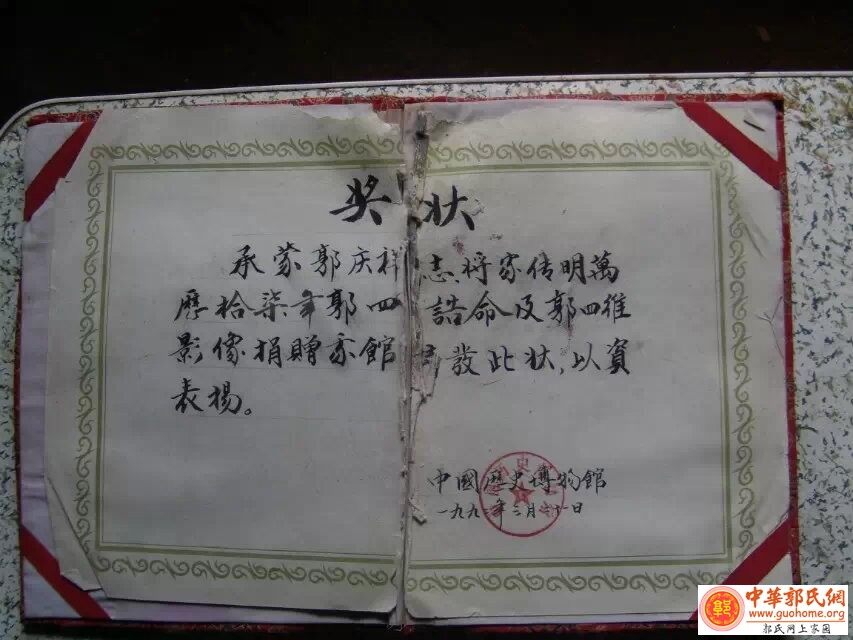 奖状
承蒙郭庆祥 志将家传明萬
歷拾柒年郭四 誥命及郭四維
影像捐贈本館 發此状,以資
表揚。
中國歷史博物館
一九九 年三月 日
中華郭氏網
www.guohome.org
郭氏网上家园